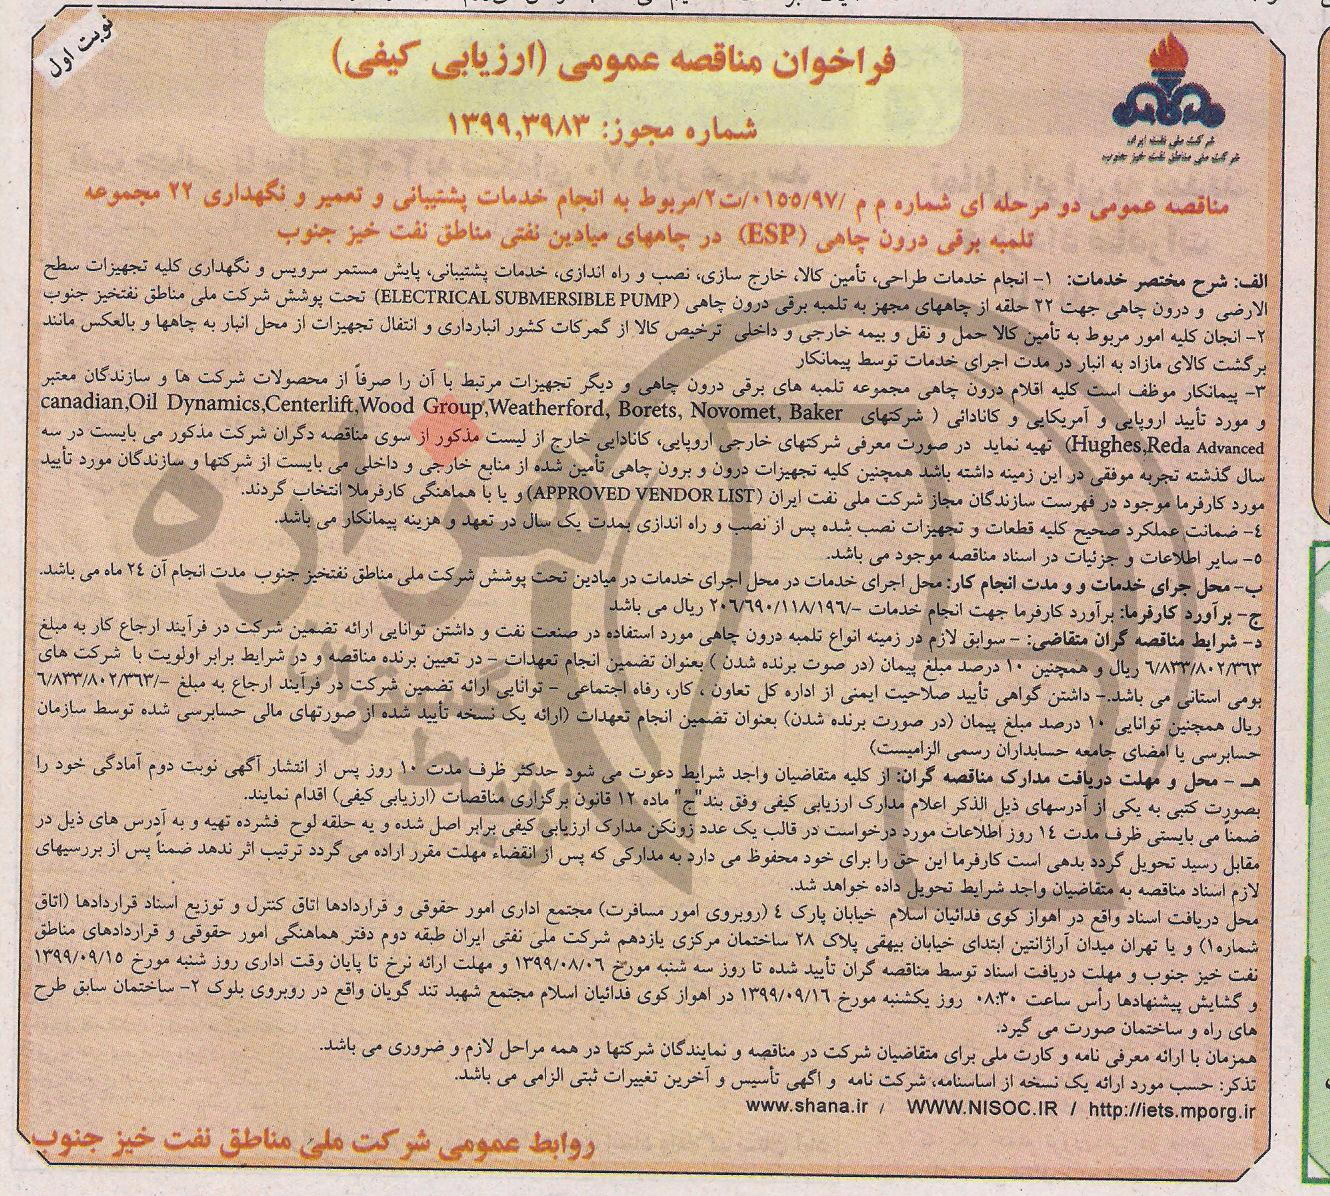 نوبت اول
فراخوان مناقصه عمومی (ارزیابی کیفی)
شماره مجوز: ۱۳۹۹,۳۹۸۳
شرکت ملی نفت ایران
شرکت ملی مناطق نفت خیز جنوب
مناقصه عمومی دو مرحله ای شماره م م /۰۱۵۵/۹۷/ت۲/مربوط به انجام خدمات پشتیبانی و تعمیر و نگهداری ۲۲ مجموعه
تلمبه برقی درون چاهی (ESP) در چاههای میادین نفتی مناطق نفت خیز جنوب
الف: شرح مختصر خدمات: ۱- انجام خدمات طراحی، تأمین کالا، خارج سازی، نصب و راه اندازی، خدمات پشتیبانی، پایش مستمر سرویس و نگهداری کلیه تجهیزات سطح
الارضی و درون چاهی جهت ۲۲ حلقه از چاههای مجهز به تلمبه برقی درون چاهی (ELECTRICAL SUBMERSIBLE PUMP) تحت پوشش شرکت ملی مناطق نفتخیز جنوب
۲- انجان کلیه امور مربوط به تأمین کالا حمل و نقل و بیمه خارجی و داخلی ترخیص کالا از گمرکات کشور انبارداری و انتقال تجهیزات از محل انبار به چاهها و بالعکس مانند
برگشت کالای مازاد به انبار در مدت اجرای خدمات توسط پیمانکار
۳- پیمانکار موظف است کلیه اقلام درون چاهی مجموعه تلمبه های برقی درون چاهی و دیگر تجهیزات مرتبط با آن را صرفاً از محصولات شرکت ها و سازندگان معتبر
و مورد تأیید اروپایی و آمریکایی و کانادائی ( شرکتهای canadian,Oil Dynamics,Centerlift,Wood Group,Weatherford, Borets, Novomet, Baker
Hughes,Reda Advanced) تهیه نماید در صورت معرفی شرکتهای خارجی اروپایی، کانادایی خارج از لیست مذکور از سوی مناقصه دگران شرکت مذکور می بایست در سه
سال گذشته تجربه موفقی در این زمینه داشته باشد همچنین کلیه تجهیزات درون و برون چاهی تأمین شده از منابع خارجی و داخلی می بایست از شرکتها و سازندگان مورد تأیید
مورد کارفرما موجود در فهرست سازندگان مجاز شرکت ملی نفت ایران (APPROVED VENDOR LIST) و یا با هماهنگی کارفرملا انتخاب گردند.
۴- ضمانت عملکرد صحیح کلیه قطعات و تجهیزات نصب شده پس از نصب و راه اندازی بمدت یک سال در تعهد و هزینه پیمانکار می باشد.
۵- سایر اطلاعات و جزئیات در اسناد مناقصه موجود می باشد.
ب- محل جرای خدمات و و مدت انجام کار: محل اجرای خدمات در محل اجرای خدمات در میادین تحت پوشش شرکت ملی مناطق نفتخیز جنوب مدت انجام آن ۲۴ ماه می باشد.
ج- برآورد کارفرما: برآورد کارفرما جهت انجام خدمات -/۲۰۶/۶۹۰/۱۱۸/۱۹۶ ریال می باشد
د- شرایط مناقصه گران متقاضی: - سوابق لازم در زمینه انواع تلمبه درون چاهی مورد استفاده در صنعت نفت و داشتن توانایی ارائه تضمین شرکت در فرآیند ارجاع کار به مبلغ
۶/۸۳۳/۸۰۲/۳۶۳ ریال و همچنین ۱۰ درصد مبلغ پیمان (در صوت برنده شدن ) بعنوان تضمین انجام تعهدات - در تعیین برنده مناقصه و در شرایط برابر اولویت با شرکت های
بومی استانی می باشد.- داشتن گواهی تأیید صلاحیت ایمنی از اداره کل تعاون ، کار، رفاه اجتماعی - توانایی ارائه تضمین شرکت در فرآیند ارجاع به مبلغ -/۶/۸۳۳/۸۰۲/۳۶۳
ریال همچنین توانایی ۱۰ درصد مبلغ پیمان (در صورت برنده شدن) بعنوان تضمین انجام تعهدات (ارائه یک نسخه تأیید شده از صورتهای مالی حسابرسی شده توسط سازمان
حسابرسی یا امضای جامعه حسابداران رسمی الزامیست)
هـ - محل و مهلت دریافت مدارک مناقصه گران: از کلیه متقاضیان واجد شرایط دعوت می شود حداکثر ظرف مدت ۱۰ روز پس از انتشار آگهی نوبت دوم آمادگی خود را
بصورت کتبی به یکی از آدرسهای ذیل الذکر اعلام مدارک ارزیابی کیفی وفق بند"ج" ماده ۱۲ قانون برگزاری مناقصات (ارزیابی کیفی) اقدام نمایند.
ضمناً می بایستی ظرف مدت ۱۴ روز اطلاعات مورد درخواست در قالب یک عدد زونکن مدارک ارزیابی کیفی برابر اصل شده و یه حلقه لوح فشرده تهیه و به آدرس های ذیل در
مقابل رسید تحویل گردد بدهی است کارفرما این حق را برای خود محفوظ می دارد به مدارکی که پس از انقضاء مهلت مقرر اراده می گردد ترتیب اثر ندهد ضمناً پس از بررسیهای
لازم اسناد مناقصه به متقاضیان واجد شرایط تحویل داده خواهد شد.
محل دریافت اسناد واقع در اهواز کوی فدائیان اسلام خیابان پارک ۴ (روبروی امور مسافرت) مجتمع اداری امور حقوقی و قراردادها اتاق کنترل و توزیع اسناد قراردادها (اتاق
شماره۱) و یا تهران میدان آرژانتین ابتدای خیابان بیهقی پلاک ۲۸ ساختمان مرکزی یازدهم شرکت ملی نفتی ایران طبقه دوم دفتر هماهنگی امور حقوقی و قراردادهای مناطق
نفت خیز جنوب و مهلت دریافت اسناد توسط مناقصه گران تأیید شده تا روز سه شنبه مورخ ۱۳۹۹/۰۸/۰۶ و مهلت ارائه نرخ تا پایان وقت اداری روز شنبه مورخ ۱۳۹۹/۰۹/۱۵
و گشایش پیشنهادها رأس ساعت ۰۸:۳۰ روز یکشنبه مورخ ۱۳۹۹/۰۹/۱۶ در اهواز کوی فدائیان اسلام مجتمع شهید تند گویان واقع در روبروی بلوک ۲- ساختمان سابق طرح
های راه و ساختمان صورت می گیرد.
همزمان با ارائه معرفی نامه و کارت ملی برای متقاضیان شرکت در مناقصه و نمایندگان شرکتها در همه مراحل لازم و ضروری می باشد.
تذکر: حسب مورد ارائه یک نسخه از اساسنامه، شرکت نامه و اگهی تأسیس و آخرین تغییرات ثبتی الزامی می باشد.
www.shana.ir / WWW.NISOC.IR / http://iets.mporg.ir
روابط عمومی شرکت ملی مناطق نفت خیز جنوب